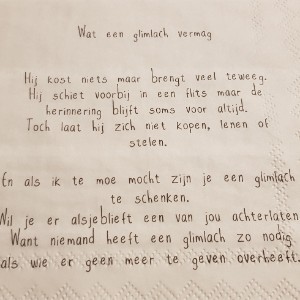 Wat een glimlach vermag
Hij kost niets maar brengt veel teweeg.
Hij schiet voorbij in een flits maar de
herinnering blijft soms voor altijd.
Toch laat hij zich niet kopen, lenen of
stelen.
En als ik te moe mocht zijn je een glimlach
te schenken.
Wil je er alsjeblieft een van jou achterlaten
Want niemand heeft een glimlach zo nodig
als wie er geen meer te geven overheeft.